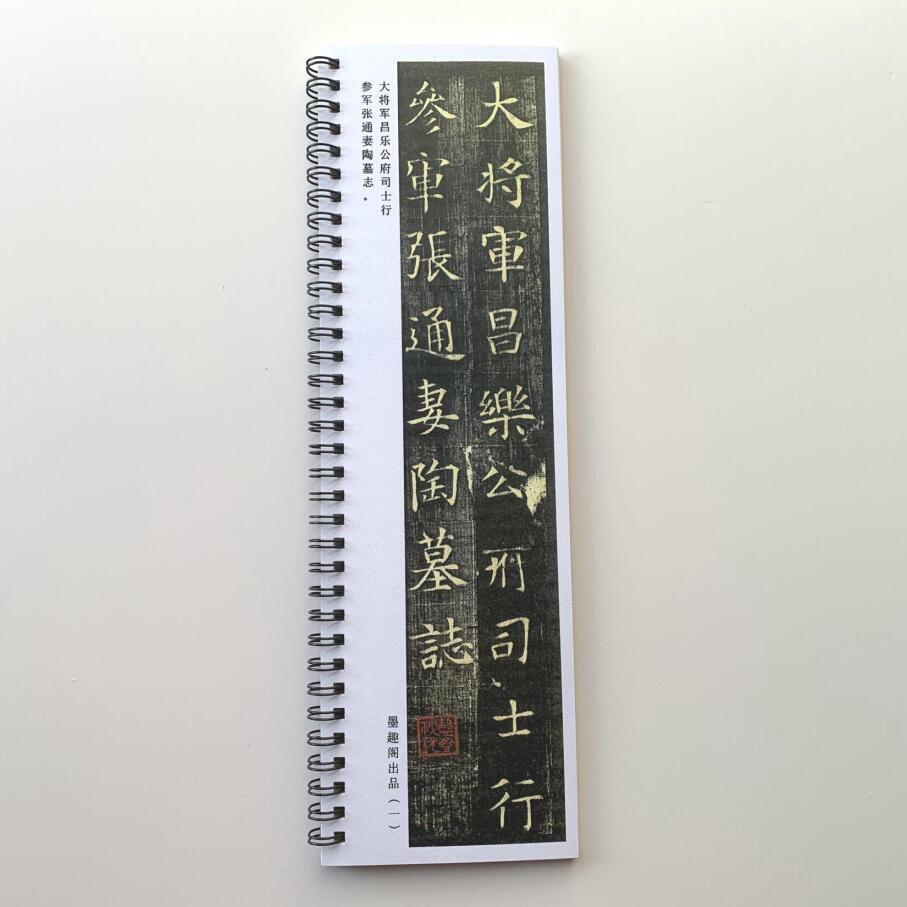 大將軍昌樂公府司士行
參軍張通妻陶墓誌
大将军昌乐公府司士行
参军张通妻陶墓志。
墨趣阁出品（一）